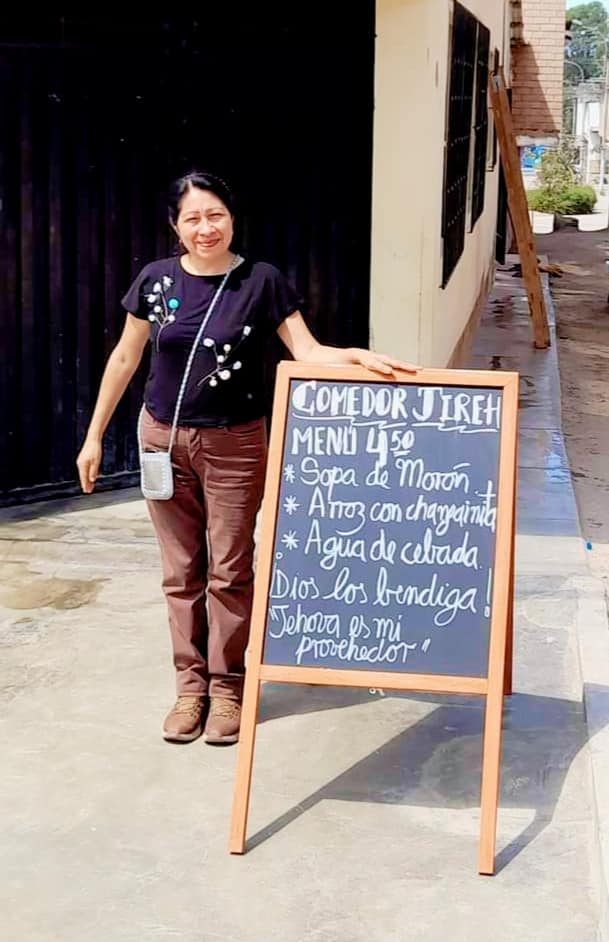 COMEDOR JIREH
MENÚ 4.50
* Sopa de Morón.
* Arroz con chanfainita
* Agua de cebada.
¡Dios los bendiga!
"Jehova es mi
provehedor"